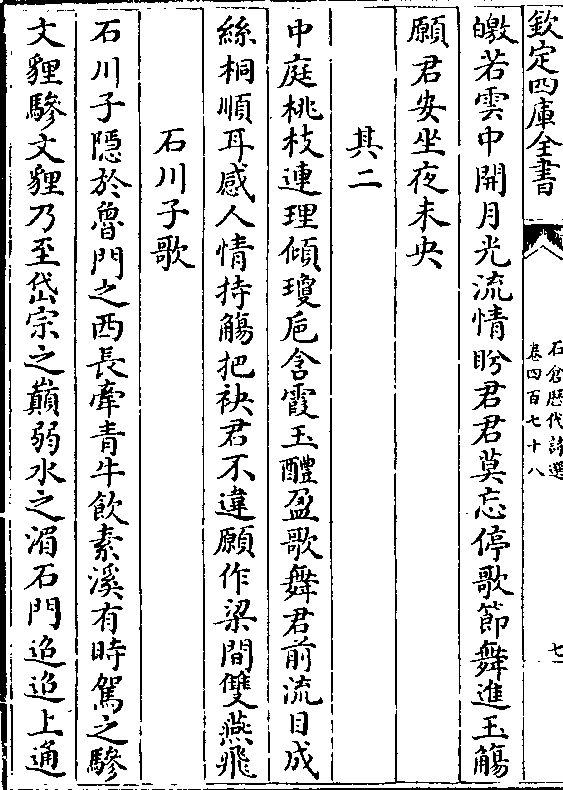 欽定四庫全書
石倉歷代詩選
卷四百七十八
七
皦若雲中開月光流情盻君君莫忘停歌節舞進玉觴
願君安坐夜未央
其二
中庭桃枝連理傾瓊巵含霞玉醴盈歌舞君前流目成
絲桐順耳感人情持觴把袂君不違願作梁間雙燕飛
石川子歌
石川子隠於魯門之西長牽青牛飲素溪有時駕之驂
文貍驂文貍乃至岱宗之巔弱水之湄石門迢迢上通